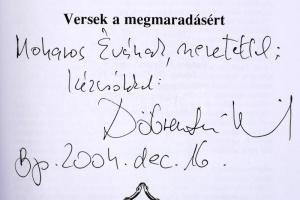 Versek a megmaradásért
Moharos Évának, szeretettel;
kézcsókkal:
Döbrentei K
Bp. 2004. dec. 16.